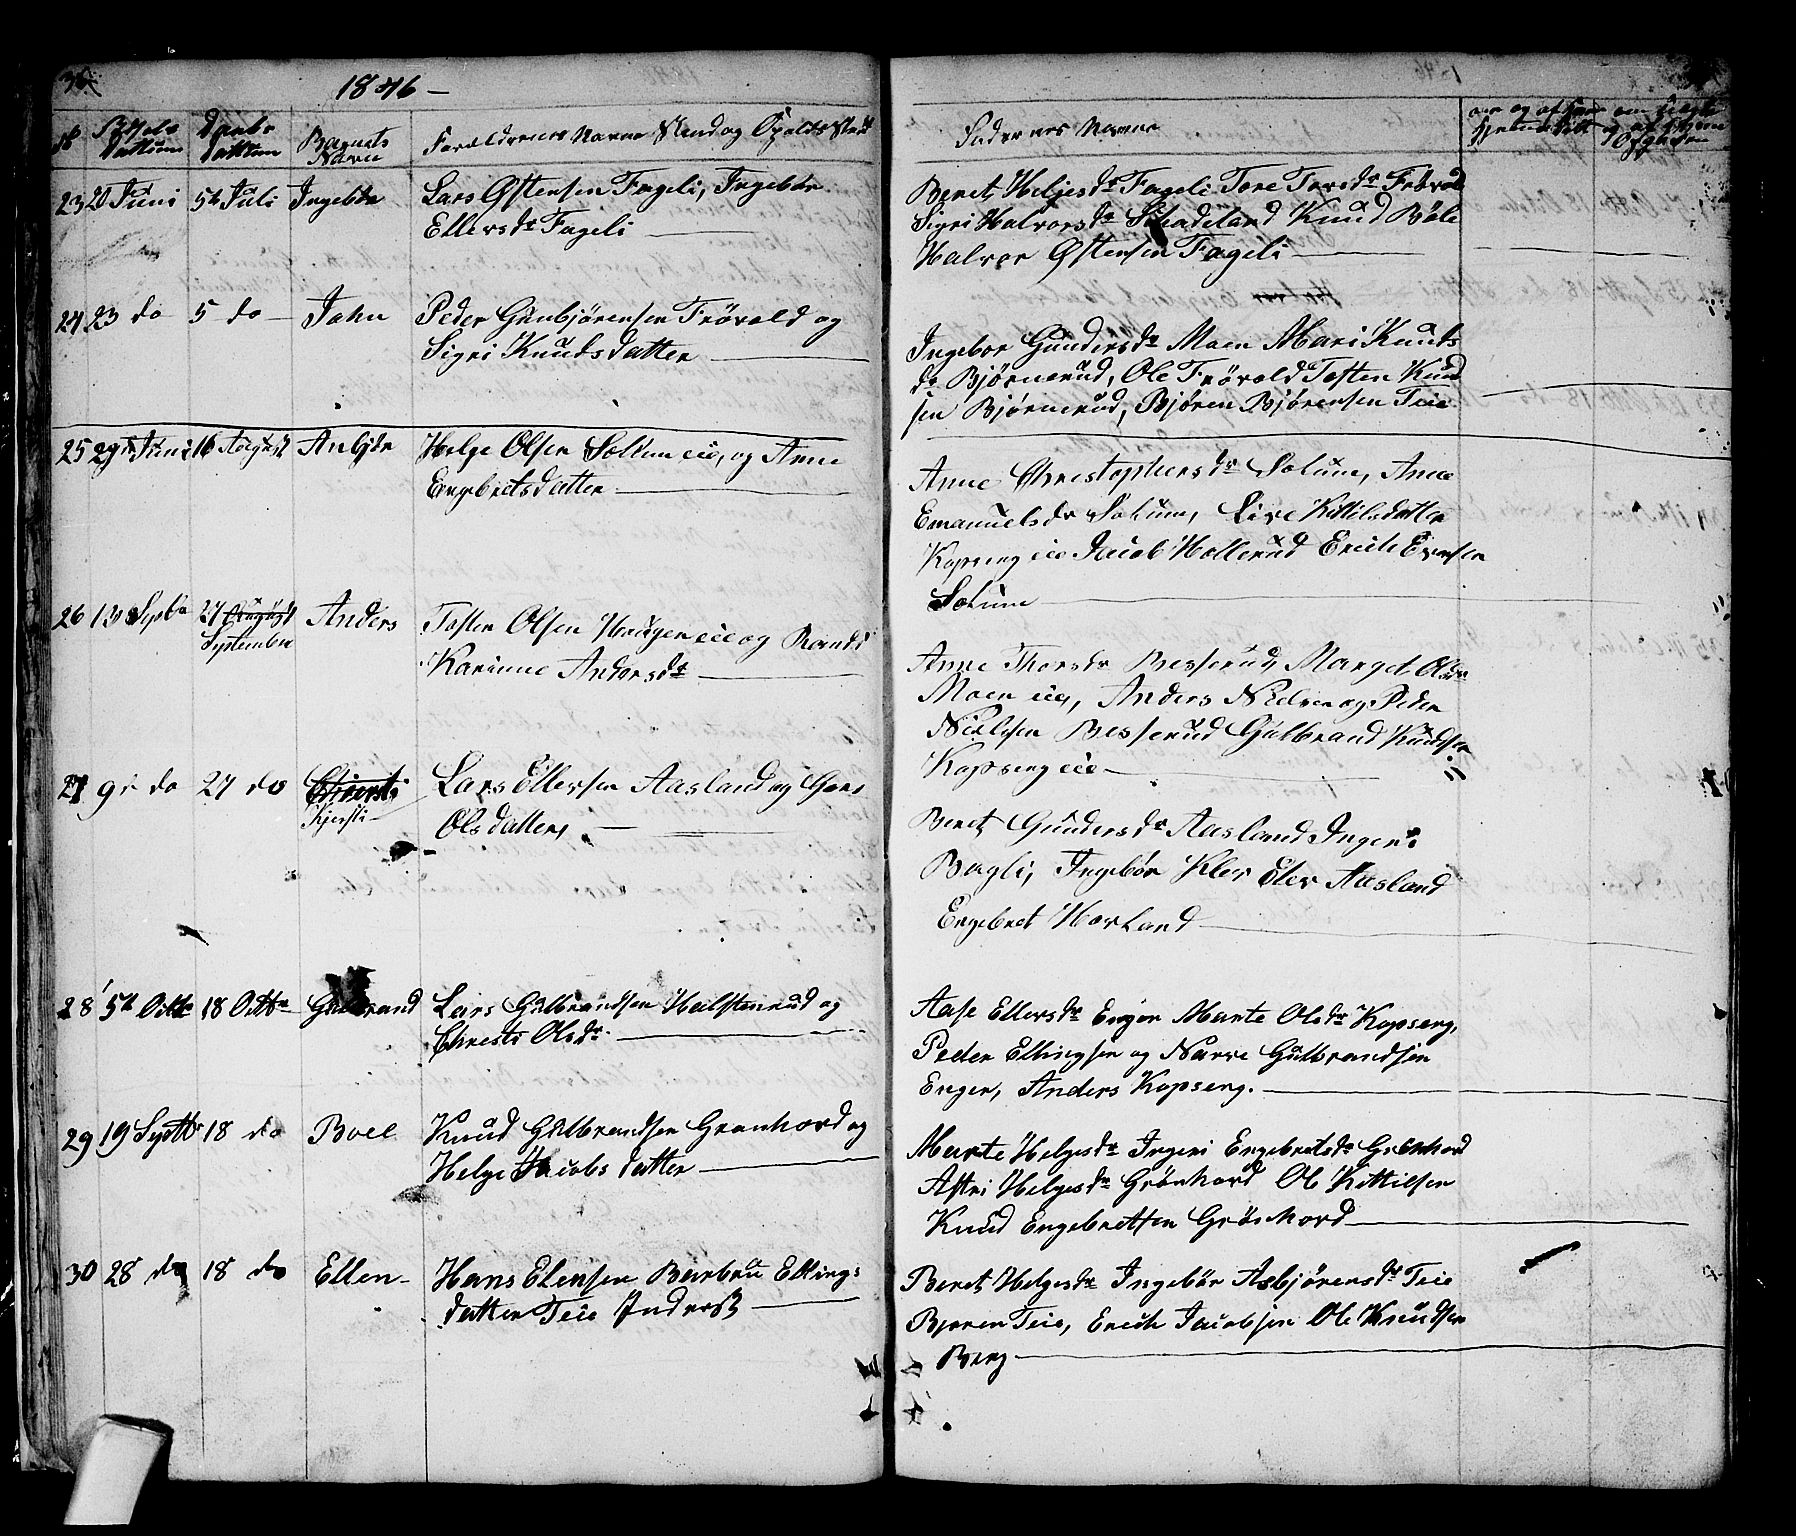 1846 –
No Fødsels Dattum Daabs Dattum Barnets Navn Foreldrenes Navne Stand og Opolds Sted Fadernes Navne
23 20 Juni 5te Juli Ingebör Lars Østensen Fageli, Ingebör
Ellersdr Fageli
Beret Helgesdr Fageli Tore Torsdr Frövold
Sigri Halvorsdr Skadeland Knud Böle
Halvor Østensen Fageli
24 23 do 5 do John Peder Gunbjörensen Frövold og
Sigri Knudsdatter
Ingebor Gundersdr Moen Mari Knuds
dr Bjørnerud, Ole Frövold Tosten Knud
sen Bjørnerud, Bjøren Bjørensen Teie
25 29 Juni 16 August Anbjör Helge Olsen Solum eie, og Anne
Engebretsdatter
Anne Christophersdr Solum, Anne
Emanuelsdr Solum, Live Kittilsdatter
Kopseng eie Jacob Hollerud Erich Evensen
Solum
26 13 Septbr 27 August
September Anders Tosten Olsen Haugen eie og Randi
Karinne Andersdr
Anne Thorsdr Besserud, Marget Olsdr
Moen eie, Anders Nielsen og Peder
Nielsen Besserud Gulbrand Knudsen
Kopseng eie
27 9 do 27 do Chiersti
Kjersti Lars Ellersen Aasland og Goro
Olsdatter,
Beret Gundersdr Aasland Ingeri
Bagli, Ingebör Klev Elev Aasland
Engebret Hovland
28 5te Octbr 18 Octbr Gulbrand Lars Gulbrandsen Halstenrud og
Christi Olsdr
Aase Ellersdr Enger Marte Olsdr Kopseng,
Peder Ellingsen og Narve Gulbrandsen
Enger, Anders Kopseng.
29 19 Septbr 18 do Boel Knud Gulbrandsen Grønhovd og
Helge Jacobsdatter
Marte Helgesdr Ingeri Engebretsdr Grønhovd
Astri Helgesdr Grønhovd Ole Kittilsen
Knud Engebretsen Grönhovd
30 28 do 18 do Ellen Hans Elensen Barbru Ellings
datter Teie Inderst
Beret Helgesdr Ingebör Asbjørensdr Teie
Bjøren Teie, Erich Jacobsen Ole Knudsen
Berg